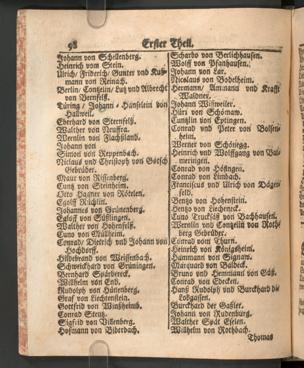 98 Erster Theil.
Johann von Schellenberg.
Heinrich vom Stein.
Ulrich/ Friderich/ Gunter und
mann von Reinach.
Berlin/ Contzlin/ Lutz und Albrecht
von Bernfelß.
Türing/ Johann Hänßlein von
Hallweil.
Eberhard von Sternfelß.
Walther von Neuffra.
Wernlin von Flachßland.
Johann von
Simon von Reppenbach.
Niclaus und Christoph von Götsch
Gebrüder.
Maur von Rissenberg.
Cuntz von Steinheim.
Otto Hagner von Rötelen.
Egloff Rüchlin.
Johannes von Grünenberg.
Egloff von Süsslingen.
Walther von Hohenfelß.
Cuno von Mülheim.
Conrad/ Dietrich und Johann von
Hochdorff.
Hildebrand von Weissenbach.
Schweickhard von Gröningen.
Bernhard Spärbereck.
Wilhelm von End.
Rudolph von Hünenberg.
Graf von Liechtenstein.
Gottfrid von Winßheimb.
Conrad Stentz.
Sigfrid von Villenberg.
Hofmann von Bibenbach.
Eckard von Berlichhausen.
Wolff von Pfanhausen.
Johann von Lar.
Nicolaus von Bodelheim.
Hermann/ Ammann und Krafft
Waldner.
Johann Wißweiler.
Hürt von Schönaw.
Cuntzlin von Eptingen.
Conrad und Peter von Bolsen-
heim.
Werner von Schönegg.
Heinrich und Wolffgang von Bal-
meringen.
Conrad von Höfingen.
Conrad von Limbach.
Franciscus und Ulrich von Dägen-
feld.
Bentzo von Hohenstein.
Bentzo von Bechenck.
Cuno Trucksäs von Bachhausen.
Wernlin und Contzelin von Roth-
berg Gebrüder.
Conrad vom Thurn.
Heinrich von Königsheim.
Hammann von Signaw.
Marquard von Baldeck.
Bruno und Hermann von Güß.
Conrad von Edecken.
Hanß Rudolph und Burckhard die
Löwgassen.
Burckhard der Gaßler.
Johann von Rudenburg.
Walther Spät Eselen.
Wilhelm von Rothbach.
Thomas